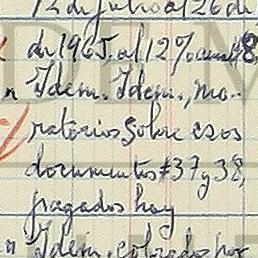 12 de julio al 26 de
de 1965 al 12% anual
" Idem. Idem., mo-
ratorios sobre esos
documentos #37 y 38,
pagados hoy
" Idem. cobrados por